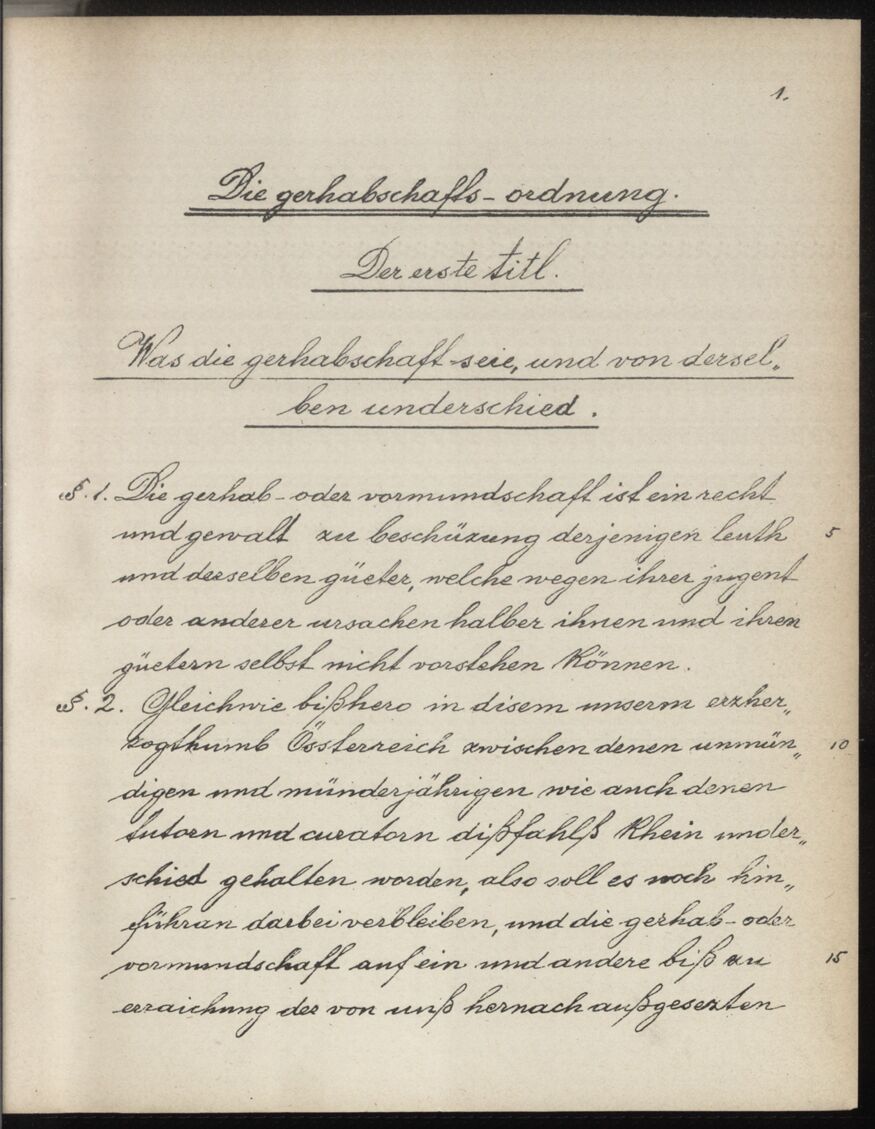 1.
Die gerhabschafts-ordnung.
Der erste titl.
Was die gerhabschaft seie, und von dersel„
ben underschied.
§. 1. Die gerhab- oder vormundschaft ist ein recht
und gewalt zu beschüzung derjenigen leuth 5
und derselben güeter, welche wegen ihrer jugent
oder anderer ursachen halber ihnen und ihren
güetern selbst nicht vorstehen können.
§. 2. Gleichwie bißhero in disem unserm erzher„
zogthumb Össterreich zwischen denen unmün„ 10
digen und münderjährigen wie auch denen
tutorn und curatorn dißfahlß khein under„
schied gehalten worden, also soll es noch hin„
führan darbei verbleiben, und die gerhab- oder
vormundschaft auf ein und andere biß zu 15
erraichung der von unß hernach außgesezten